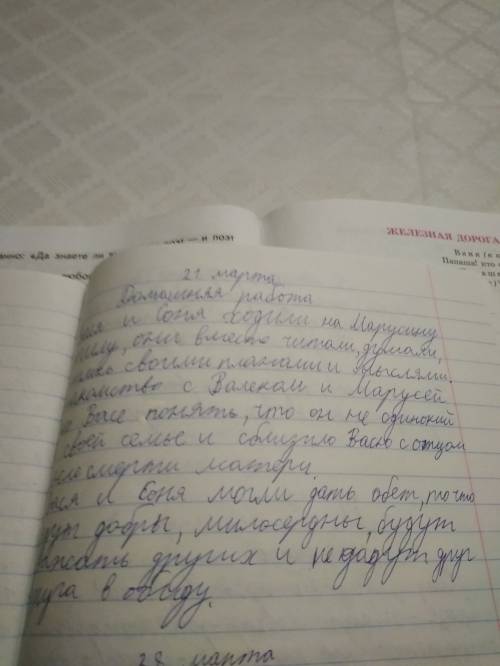 нно: «Да знаете ли
— и поэт
ЖЕЛЕЗНАЯ ДОРОГА
Ваня (в к
Папаша! кто
21 марта
Домашняя работа
и Соня ходили на Марусину
, они вместе читали, думали,
своими планами и мыслями.
комство с Валеком и Марусей
Васе понять, что он не одинокий
своей семье и сблизило Васю с отцом
смерти матери.
ся и Соня могли дать обет, то что
дут добры, милосердны, будут
жать других и не дадут друг
руга в обиду.
28 марта